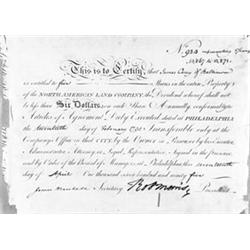 No. 920
This is to Certify, that James Carey of Baltimore
is entitled to five Shares in the entire Property of
the NORTH AMERICAN LAND COMPANY; the Dividend whereof shall not
be less than Six Dollars on each Share Annually, conformably to
Articles of Agreement Duly Executed dated at PHILADELPHIA
the twentieth day of February 1795 Transferable only at the
Company's Office in that CITY, by the Owner in Person or by his Executor
Administrator, Attorney or Legal Representative. Signed in the presence
and by Order of the Board of Managers, at Philadelphia this seventh
day of April One thousand seven hundred and ninety five
James Marshall Secretary Rob Morris President